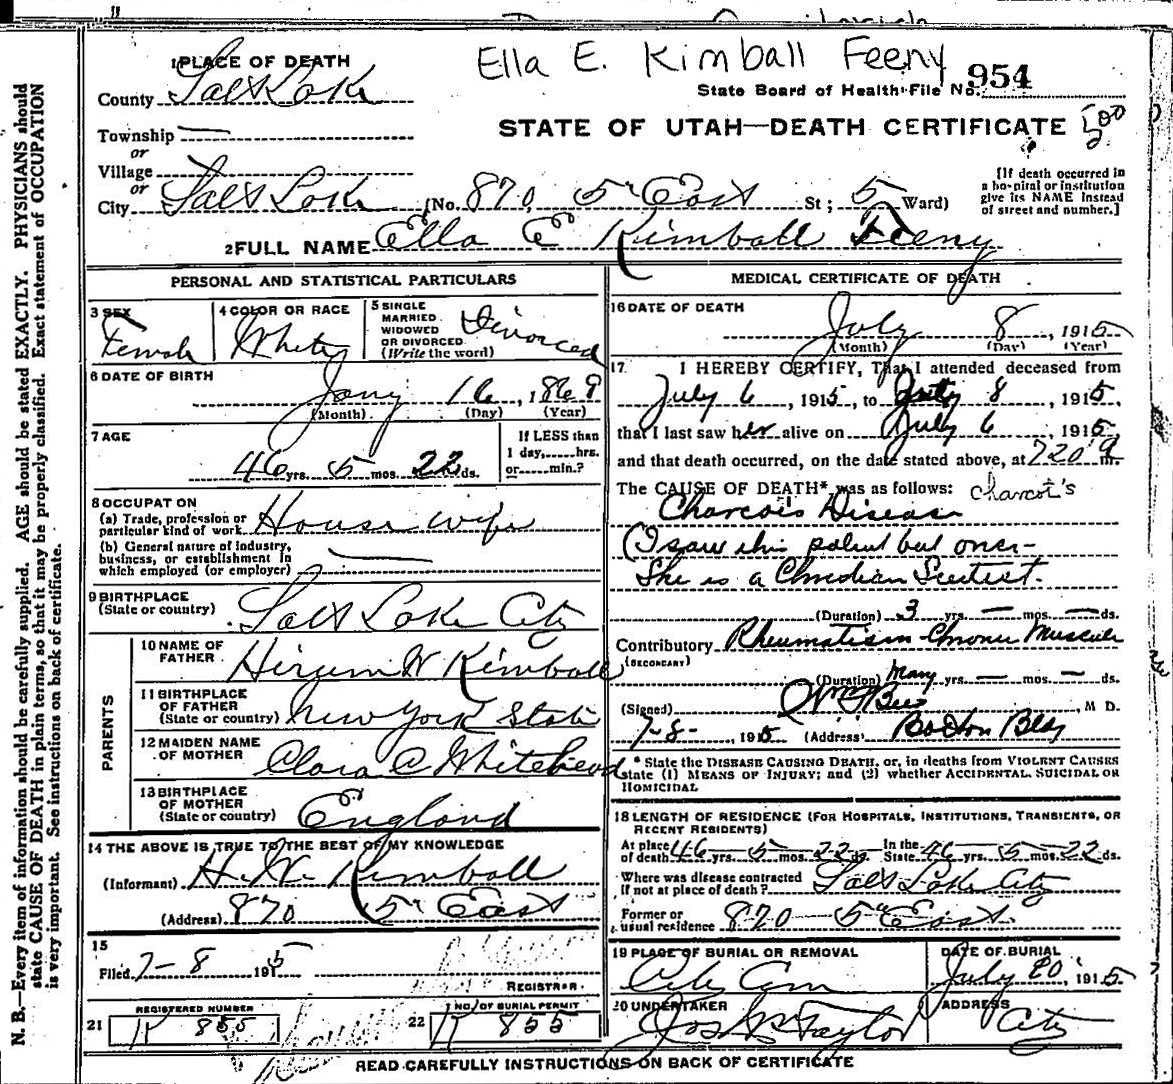 Ella E. Kimball Feeny
1 PLACE OF DEATH
County Salt Lake
State Board of Health File No. 954
Township —
or
STATE OF UTAH—DEATH CERTIFICATE
500
Village
or
City Salt Lake (No. 870 5" East St; 5 Ward)
[If death occurred in
a hospital or institution
give its NAME instead
of street and number.]
2 FULL NAME Ella E Kimball Feeny
PERSONAL AND STATISTICAL PARTICULARS
3 SEX
Female
4 COLOR OR RACE
White
5 SINGLE
MARRIED
WIDOWED
OR DIVORCED
(Write the word)
Divorced
6 DATE OF BIRTH
Jany 16, 1869
(Month) (Day) (Year)
7 AGE
46 yrs. 5 mos. 22 ds.
If LESS than
1 day,......hrs.
or......min.?
8 OCCUPATION
(a) Trade, profession or
particular kind of work House wife
(b) General nature of industry,
business, or establishment in
which employed (or employer) —
9 BIRTHPLACE
(State or country) Salt Lake City
PARENTS
10 NAME OF
FATHER Hiram W Kimball
11 BIRTHPLACE
OF FATHER
(State or country) New York State
12 MAIDEN NAME
OF MOTHER Clara C Whitehead
13 BIRTHPLACE
OF MOTHER
(State or country) England
14 THE ABOVE IS TRUE TO THE BEST OF MY KNOWLEDGE
(Informant) H. W. Kimball
(Address) 870 5" East
15
Filed 7-8 1915
REGISTRAR.
21 REGISTERED NUMBER
K 855
22 NO. OF BURIAL PERMIT
K 855
MEDICAL CERTIFICATE OF DEATH
16 DATE OF DEATH
July 8, 1915
(Month) (Day) (Year)
17 I HEREBY CERTIFY, That I attended deceased from
July 6, 1915, to July 8, 1915,
that I last saw her alive on July 6 1915
and that death occurred, on the date stated above, at 720 a m.
The CAUSE OF DEATH* was as follows: Charcot's
Charcots Disease
(I saw this patient but once—
She is a Christian Scientist.
(Duration) 3 yrs. — mos. — ds.
Contributory Rheumatism-Chronic Muscular
(SECONDARY)
(Duration) Many yrs. — mos. — ds.
(Signed) M D.
7-8-, 1915 (Address) Boston Bldg
* State the DISEASE CAUSING DEATH, or, in deaths from VIOLENT CAUSES
state (1) MEANS OF INJURY; and (2) whether ACCIDENTAL, SUICIDAL OR
HOMICIDAL
18 LENGTH OF RESIDENCE (FOR HOSPITALS, INSTITUTIONS, TRANSIENTS, OR
RECENT RESIDENTS)
At place
of death 46 yrs. 5 mos. 22 ds. In the
State 46 yrs. 5 mos. 22 ds.
Where was disease contracted
if not at place of death? Salt Lake City
Former or
usual residence 870 - 5" East
19 PLACE OF BURIAL OR REMOVAL
City Cem
DATE OF BURIAL
July 10, 1915
20 UNDERTAKER
Jos Wm Taylor
ADDRESS
City
READ CAREFULLY INSTRUCTIONS ON BACK OF CERTIFICATE
N. B.—Every item of information should be carefully supplied. AGE should be stated EXACTLY. PHYSICIANS should
state CAUSE OF DEATH in plain terms, so that it may be properly classified. Exact statement of OCCUPATION
is very important. See instructions on back of certificate.